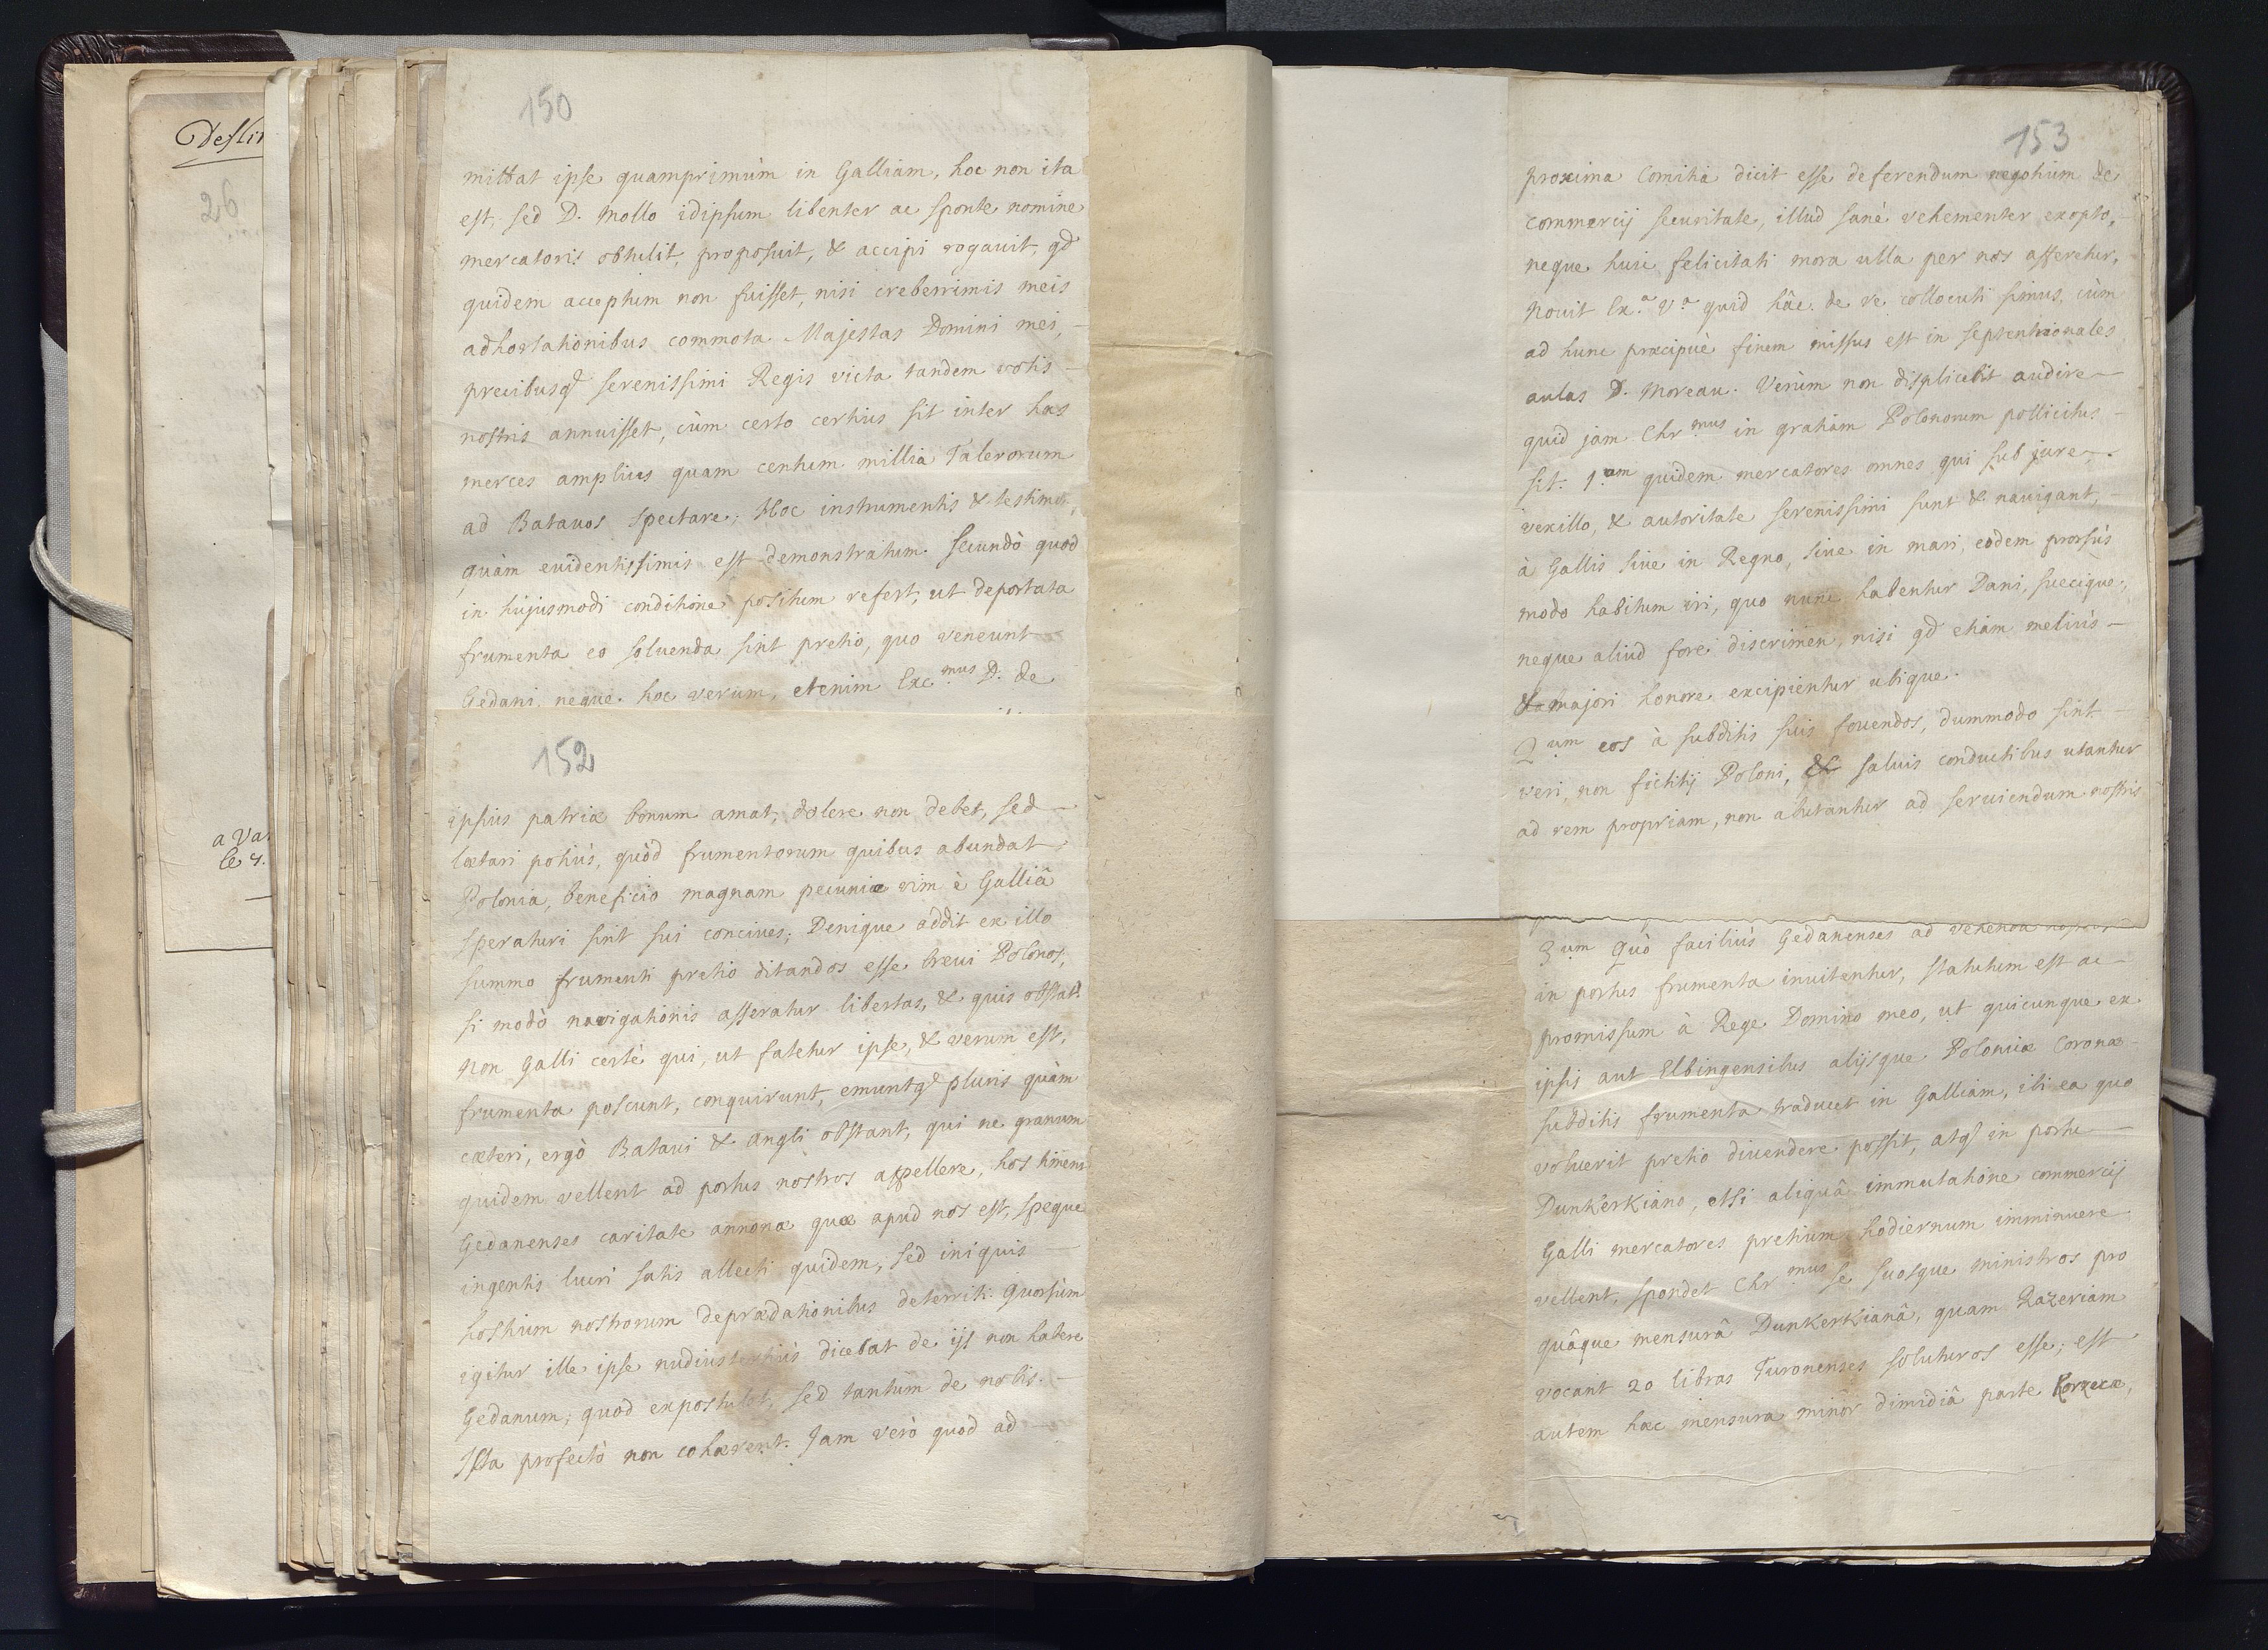 Deslin
26
a Va
le 4.
150
mittat ipse quamprimùm in Galliam, hoc non ita
est, sed D. Mollo idipsum libenter ac sponte nomine
mercatoris obtulit, proposuit, & accipi rogavit, qd
quidem acceptum non fuisset, nisi creberrimis meis
adhortationibus commota Majestas Domini mei,
precibusq serenissimi Regis victa tandem votis
nostris annuisset, cùm certo certius sit inter has
merces amplius quam centum millia Talerorum
ad Batavos spectare; Hoc instrumentis & testimo
quàm evidentissimis est demonstratum. Secundò quod
in hujusmodi conditione positum refert, ut deportata
frumenta eo solvenda sint pretio, quo veneunt
Gedani, neque hoc verùm, etenim Exc.mus D. de
152
ipsius patriæ bonum amat, dolere non debet, sed
lætari potiùs, quòd frumentorum quibus abundat
Polonia, beneficio magnam pecuniæ vim è Galliâ
speraturi sint sui concives; Denique addit ex illo
summo frumenti pretio ditandos esse brevi Polonos,
si modò navigationis asseratur libertas, & quis obstat?
Non Galli certè qui, ut fatetur ipse, & verum est,
frumenta poscunt, conquirunt, emuntq pluris quàm
cæteri, ergò Batavi & Angli obstant, qui ne granum
quidem vellent ad portus nostros appellere, hos timent
Gedanenses caritate annonæ quæ apud nos est, speque
ingentis lucri satis allecti quidem, sed iniquis
hostium nostrorum deprædationibus deterriti. Quorsùm
igitur ille ipse nudiustertiùs dicebat de ijs non habere
Gedanum, quod expostulet, sed tantùm de nobis.
Ista profectò non cohærent. Jam verò quod ad
153
proxima Comitia dicit esse deferendum negotium de
commercij securitate, illud sanè vehementer exopto,
neque huic felicitati mora ulla per nos afferetur,
Novit Ex.a V.a quid hâc de re collocuti simus, cùm
ad hunc præcipuè finem missus est in septentrionales
aulas D. Moreau. Verùm non displicebit audire
quid jam Chr.mus in gratiam Polonorum pollicitus
sit. 1.am quidem mercatores omnes qui sub jure,
vexillo, & autoritate serenissimi sunt & navigant,
à Gallis sive in Regno, sive in mari, eodem prorsùs
modo habitum iri, quo nunc habentur Dani, suecique,
neque aliud fore discrimen, nisi qd etiam meliùs
& majori honore excipientur ubique.
2um eos à subditis suis fovendos, dummodo sint
veri, non fictitij Poloni, & salvis conductibus utantur
ad rem propriam, non abutantur ad serviendum nostris
3um Quò faciliùs Gedanenses ad vehenda nostros
in portus frumenta invitentur, statutum est ac
promissum à Rege Domino meo, ut quicunque ex
ipsis aut Elbingensibus alijsque Poloniæ Coronæ
subditis frumenta traducet in Galliam, ibi ea quo
voluerit pretio divendere possit, atq in portu
Dunkerkiano, etsi aliquâ immutatione commercij
Galli mercatores pretium hodiernum imminuere
vellent, spondet Chr.mus se suosque ministros pro
quâque mensurâ Dunkerkianâ, quam Razeriam
vocant 20 libras Turonenses soluturos esse; est
autem hæc mensura minor dimidiâ parte Korzecæ,